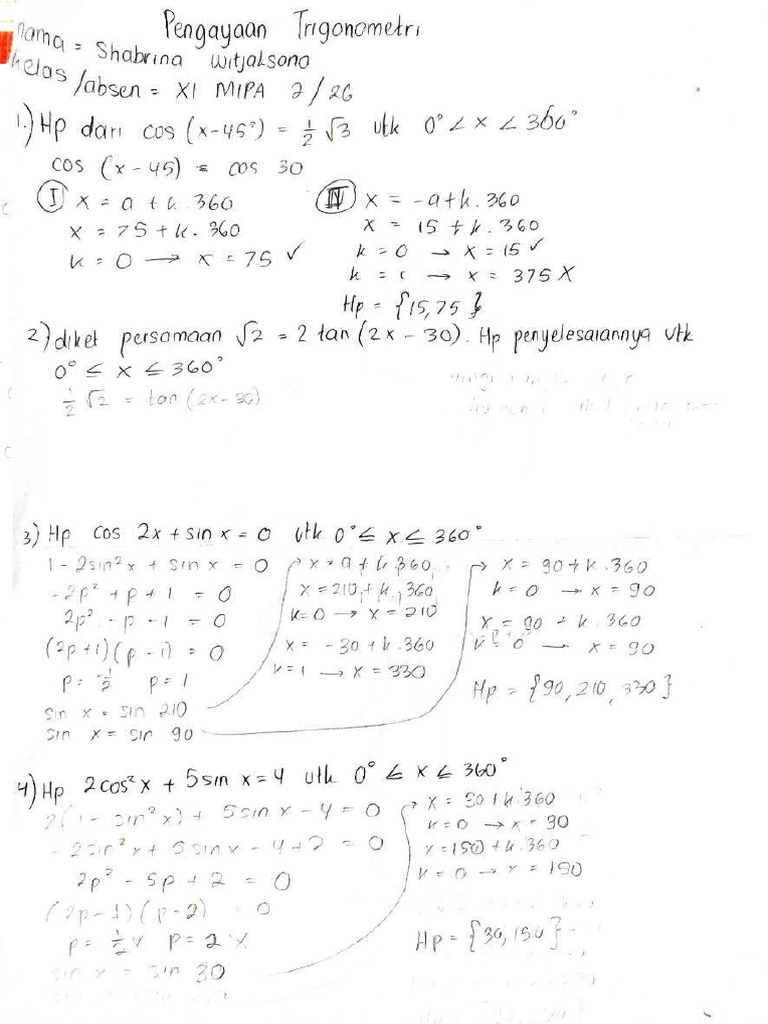 Pengayaan Trigonometri
nama = Shabrina Witjaksono
kelas/absen = XI MIPA 2/26
1.) Hp dari cos (x-45°) = 1/2 √3 utk 0° < x < 360°
cos (x - 45) = cos 30
I x = a + k. 360
x = 75 + k. 360
k = 0 → x = 75 ✓
IV x = -a + k. 360
x = 15 + k. 360
k = 0 → x = 15 ✓
k = 1 → x = 375 X
Hp = {15, 75}
2) diket persamaan √2 = 2 tan (2x - 30). Hp penyelesaiannya utk
0° ≤ x ≤ 360°
1/2 √2 = tan (2x - 30)
3) Hp cos 2x + sin x = 0 utk 0° ≤ x ≤ 360°
1 - 2sin² x + sin x = 0
-2p² + p + 1 = 0
2p² - p - 1 = 0
(2p+1)(p-1) = 0
p = -1/2 p = 1
sin x = sin 210
sin x = sin 90
x = a + k. 360
x = 210 + k. 360
k = 0 → x = 210
x = -30 + k. 360
k = 1 → x = 330
x = 90 + k. 360
k = 0 → x = 90
x = 90 + k. 360
k = 0 → x = 90
Hp = {90, 210, 330}
4) Hp 2cos² x + 5 sin x = 4 utk 0° ≤ x ≤ 360°
2(1 - sin² x) + 5 sin x - 4 = 0
-2sin² x + 5 sin x - 4 + 2 = 0
2p² - 5p + 2 = 0
(2p-1)(p-2) = 0
p = 1/2 v p = 2 X
sin x = sin 30
x = 30 + k. 360
k = 0 → x = 30
x = 150 + k. 360
k = 0 → x = 150
Hp = {30, 150}